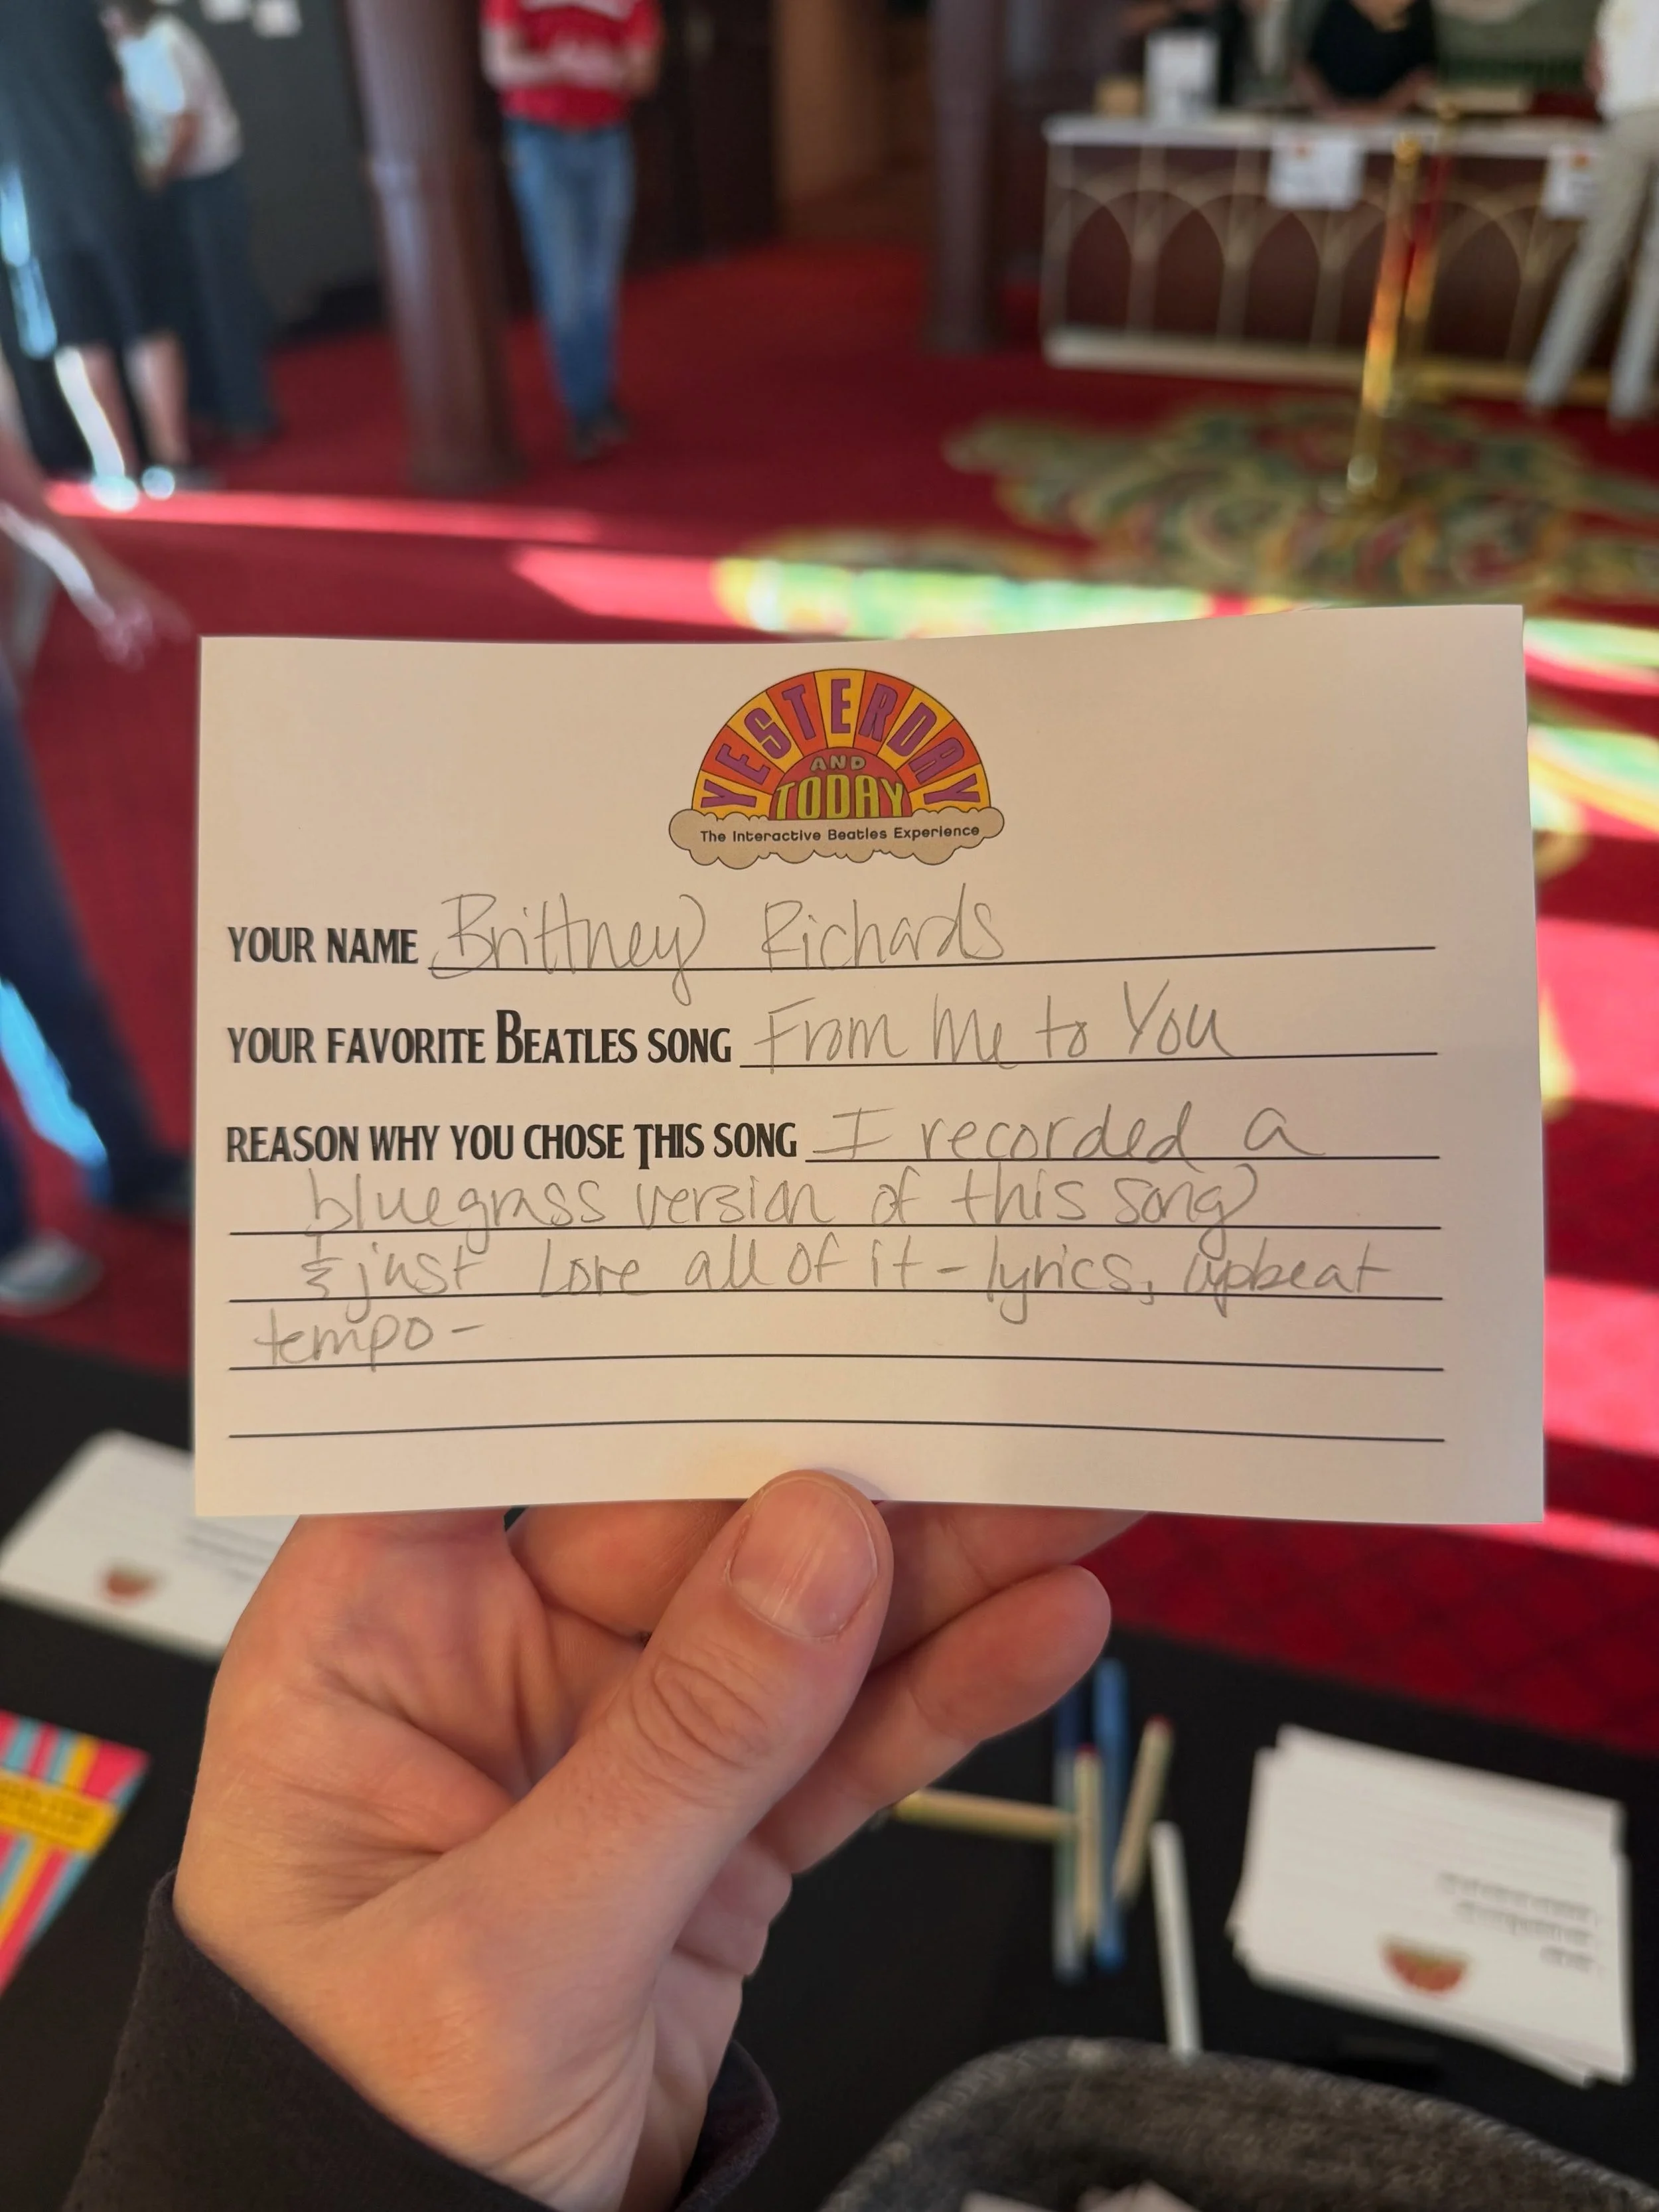 YESTERDAY
AND
TODAY
The Interactive Beatles Experience
YOUR NAME Brittney Richards
YOUR FAVORITE BEATLES SONG From Me to You
REASON WHY YOU CHOSE THIS SONG I recorded a
bluegrass version of this song
& just Love all of it - lyrics, upbeat
tempo -